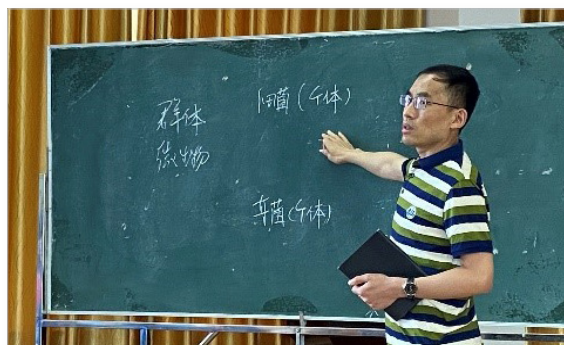 群体
微生物
细菌(个体)
真菌(个体)